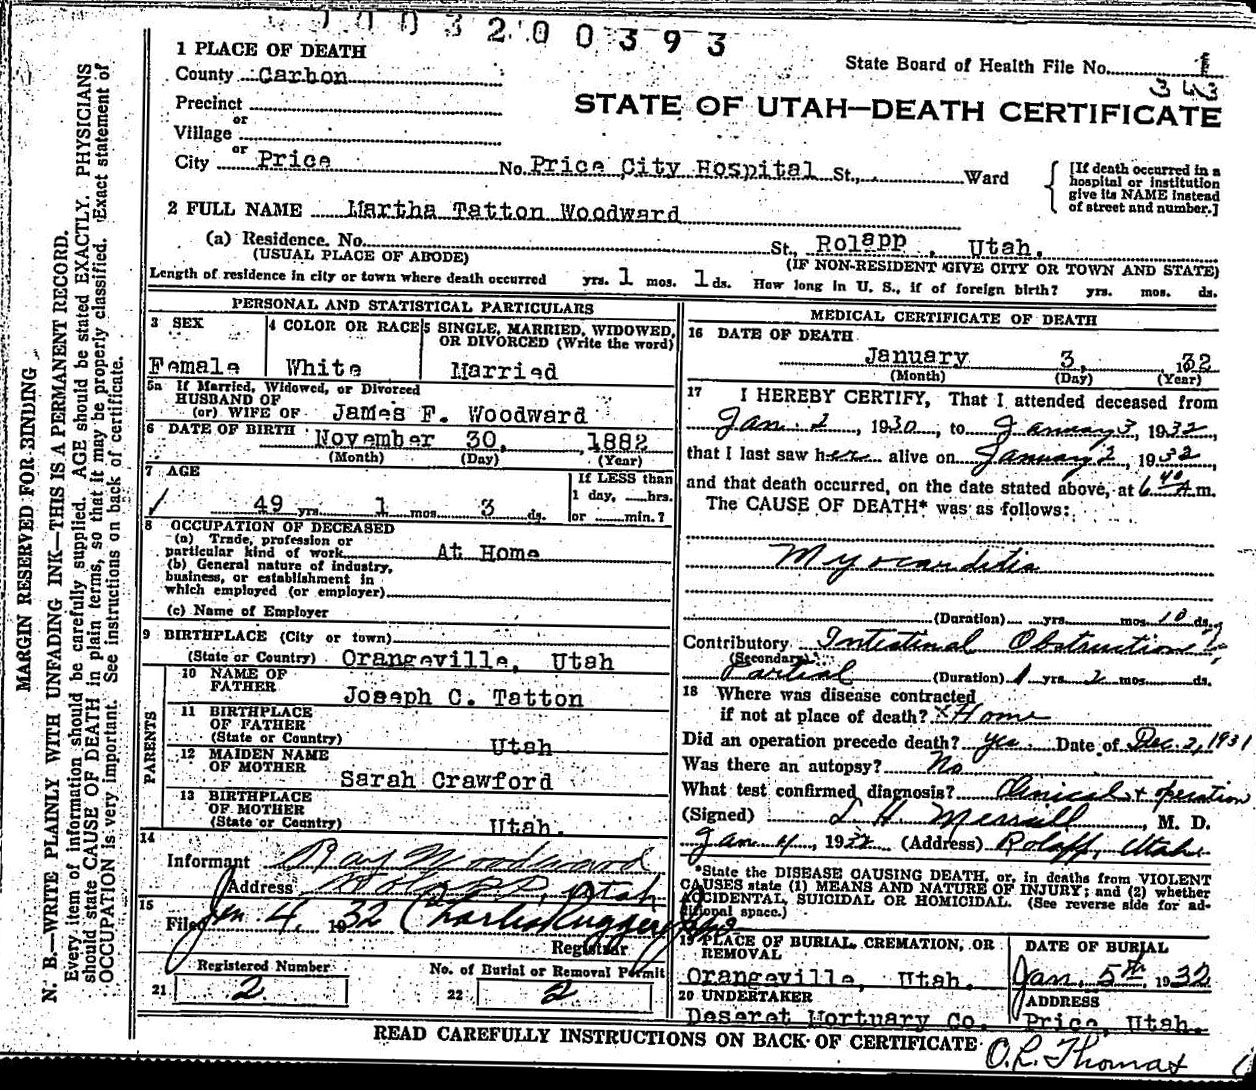 003200393
1 PLACE OF DEATH
County Carbon
State Board of Health File No. 1
343
Precinct
or
Village
or
City Price
STATE OF UTAH—DEATH CERTIFICATE
No. Price City Hospital St., Ward
[If death occurred in a hospital or institution give its NAME instead of street and number.]
2 FULL NAME Martha Tatton Woodward
(a) Residence. No. St., Rolapp, Utah.
(USUAL PLACE OF ABODE) (IF NON-RESIDENT GIVE CITY OR TOWN AND STATE)
Length of residence in city or town where death occurred yrs. 1 mos. 1 ds. How long in U. S., if of foreign birth? yrs. mos. ds.
PERSONAL AND STATISTICAL PARTICULARS
3 SEX
Female
4 COLOR OR RACE
White
5 SINGLE, MARRIED, WIDOWED, OR DIVORCED (Write the word)
Married
5a If Married, Widowed, or Divorced
HUSBAND OF
(or) WIFE OF James F. Woodward
6 DATE OF BIRTH November 30, 1882
(Month) (Day) (Year)
7 AGE
49 yrs. 1 mos. 3 ds.
If LESS than
1 day, hrs.
or min.?
8 OCCUPATION OF DECEASED
(a) Trade, profession or
particular kind of work At Home
(b) General nature of industry,
business, or establishment in
which employed (or employer)
(c) Name of Employer
9 BIRTHPLACE (City or town)
(State or Country) Orangeville, Utah
PARENTS
10 NAME OF
FATHER Joseph C. Tatton
11 BIRTHPLACE
OF FATHER
(State or Country) Utah
12 MAIDEN NAME
OF MOTHER Sarah Crawford
13 BIRTHPLACE
OF MOTHER
(State or Country) Utah.
14
Informant Ray Woodward
Address Rolapp, Utah
15
Filed Jan 4, 1932 Charles Ruggeri
Registrar
Registered Number
21 2
No. of Burial or Removal Permit
22 2
MEDICAL CERTIFICATE OF DEATH
16 DATE OF DEATH
January 3, 1932
(Month) (Day) (Year)
17 I HEREBY CERTIFY, That I attended deceased from
Jan. 2, 1930, to January 3, 1932,
that I last saw her alive on January 2, 1932,
and that death occurred, on the date stated above, at 6 40 A.m.
The CAUSE OF DEATH* was as follows:
Myocarditis
(Duration) yrs. mos. 10 ds.
Contributory Intestinal Obstruction
(Secondary)
Partial (Duration) 1 yrs. 2 mos. ds.
18 Where was disease contracted
if not at place of death? Home
Did an operation precede death? Yes Date of Dec. 2, 1931
Was there an autopsy? No
What test confirmed diagnosis? Clinical + operation
(Signed) L H. Merrill, M. D.
Jan 4, 1932 (Address) Rolapp, Utah
*State the DISEASE CAUSING DEATH, or, in deaths from VIOLENT
CAUSES state (1) MEANS AND NATURE OF INJURY; and (2) whether
ACCIDENTAL, SUICIDAL OR HOMICIDAL. (See reverse side for ad-
ditional space.)
19 PLACE OF BURIAL, CREMATION, OR
REMOVAL
Orangeville, Utah.
DATE OF BURIAL
Jan. 5th 1932
20 UNDERTAKER
Deseret Mortuary Co.
ADDRESS
Price, Utah.
READ CAREFULLY INSTRUCTIONS ON BACK OF CERTIFICATE
O. R. Thomas
MARGIN RESERVED FOR BINDING
N. B.—WRITE PLAINLY WITH UNFADING INK—THIS IS A PERMANENT RECORD.
Every item of information should be carefully supplied. AGE should be stated EXACTLY. PHYSICIANS
should state CAUSE OF DEATH in plain terms, so that it may be properly classified. Exact statement of
OCCUPATION is very important. See instructions on back of certificate.